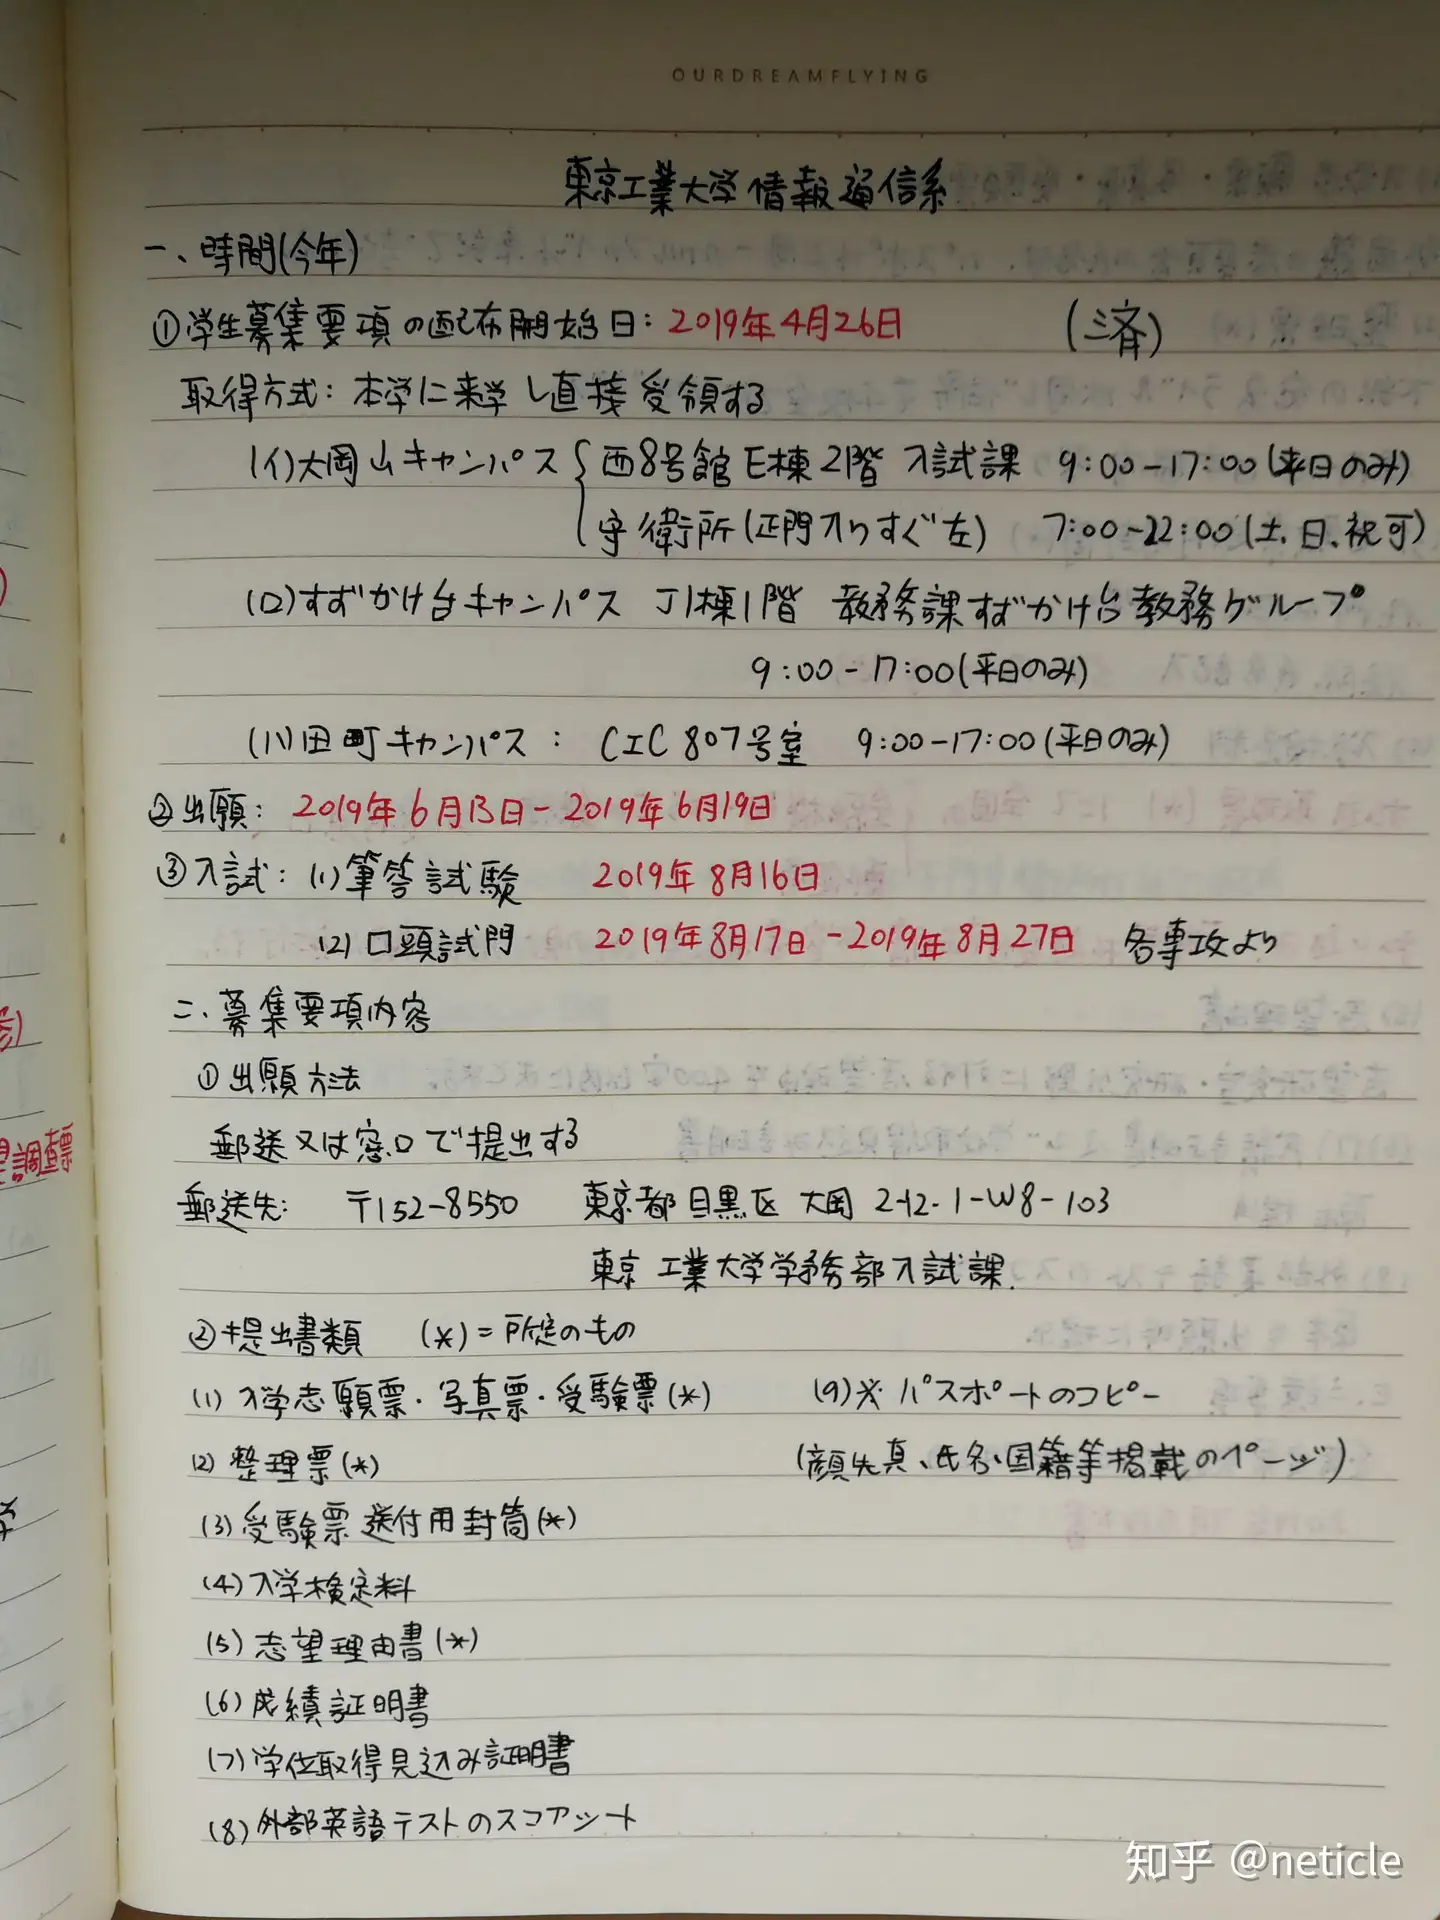 OURDREAMFLYING
東京工業大学 情報通信系
一、時間(今年)
①学生募集要項の配布開始日: 2019年4月26日 (済)
取得方式: 本学に来学し直接受領する
(イ)大岡山キャンパス { 西8号館E棟2階 入試課 9:00-17:00(平日のみ)
守衛所(正門入りすぐ左) 7:00-22:00(土、日、祝可)
(ロ)すずかけ台キャンパス J1棟1階 教務課すずかけ台教務グループ
9:00-17:00(平日のみ)
(ハ)田町キャンパス: CIC 807号室 9:00-17:00(平日のみ)
②出願: 2019年6月13日-2019年6月19日
③入試: (1)筆答試験 2019年8月16日
(2)口頭試門 2019年8月17日-2019年8月27日 各専攻より
二、募集要項内容
①出願方法
郵送又は窓口で提出する
郵送先: 〒152-8550 東京都目黒区大岡2-12-1-W8-103
東京工業大学学務部入試課.
②提出書類 (*)=所定のもの
(1)入学志願票・写真票・受験票(*) (9)※パスポートのコピー
(2)整理票(*) (顔写真、氏名、国籍等掲載のページ)
(3)受験票送付用封筒(*)
(4)入学検定料
(5)志望理由書(*)
(6)成績証明書
(7)学位取得見込み証明書
(8)外部英語テストのスコアシート
調査票
知乎 @neticle